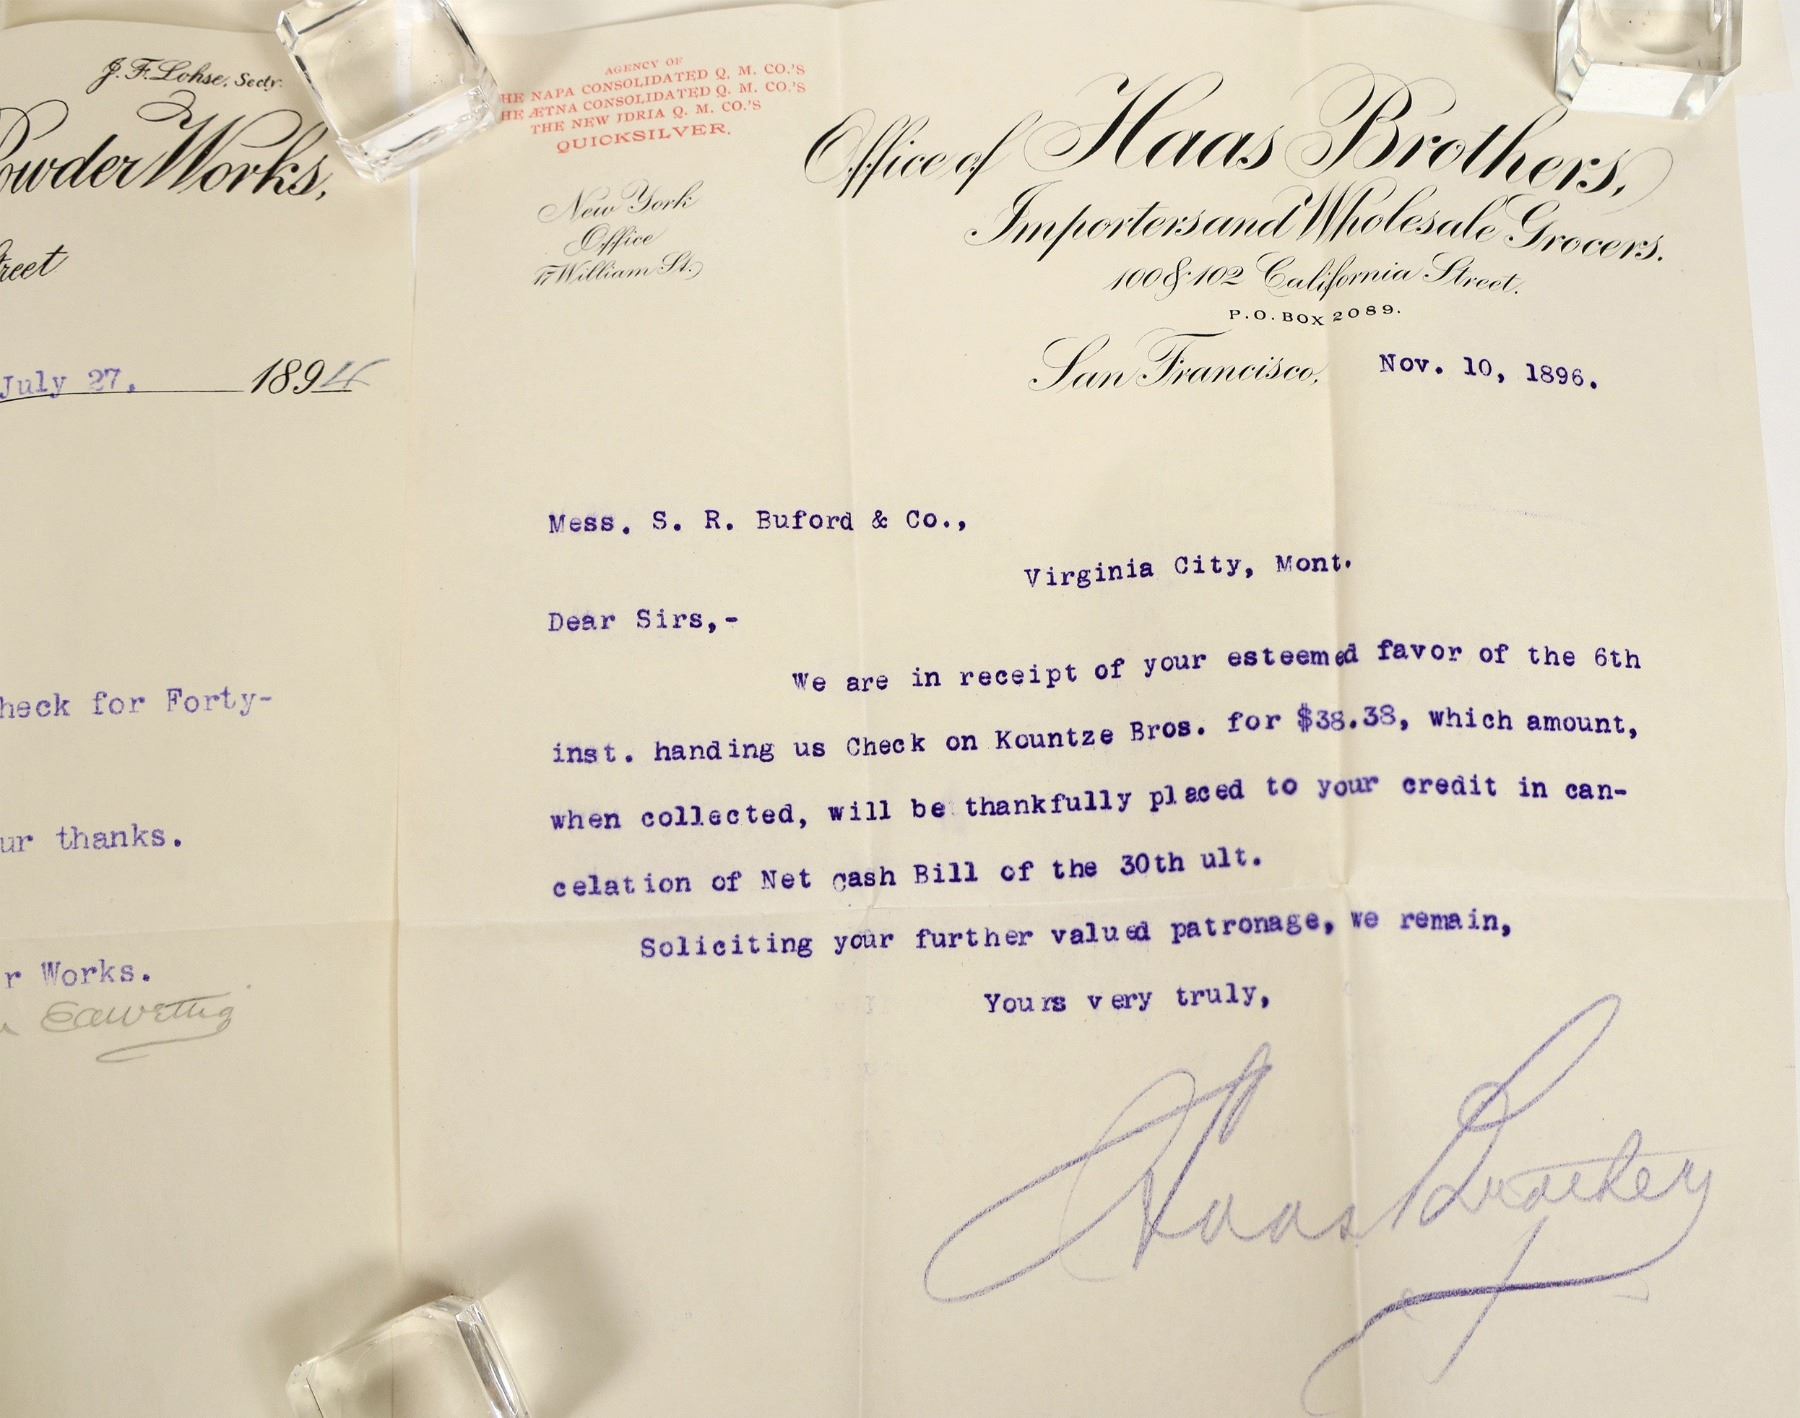 J. F. Lohse, Secty.
Powder Works,
July 27, 1894
for Forty-
thanks.
Works.
AGENCY OF
THE NAPA CONSOLIDATED Q. M. CO.'S
THE ÆTNA CONSOLIDATED Q. M. CO.'S
THE NEW IDRIA Q. M. CO.'S
QUICKSILVER.
New York
Office
17 William St.
Office of Haas Brothers,
Importers and Wholesale Grocers.
100 & 102 California Street.
P.O. BOX 2089.
San Francisco, Nov. 10, 1896.
Mess. S. R. Buford & Co.,
Virginia City, Mont.
Dear Sirs,-
We are in receipt of your esteemed favor of the 6th
inst. handing us Check on Kountze Bros. for $38.38, which amount,
when collected, will be thankfully placed to your credit in can-
celation of Net cash Bill of the 30th ult.
Soliciting your further valued patronage, we remain,
Yours very truly,
Haas Brothers